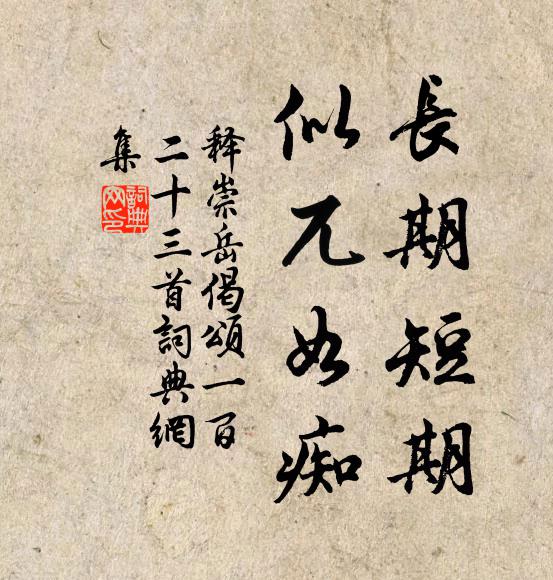 長期短期
似兀如痴
释崇岳偈頌一百
二十三首詞典網
集
詞典
网印